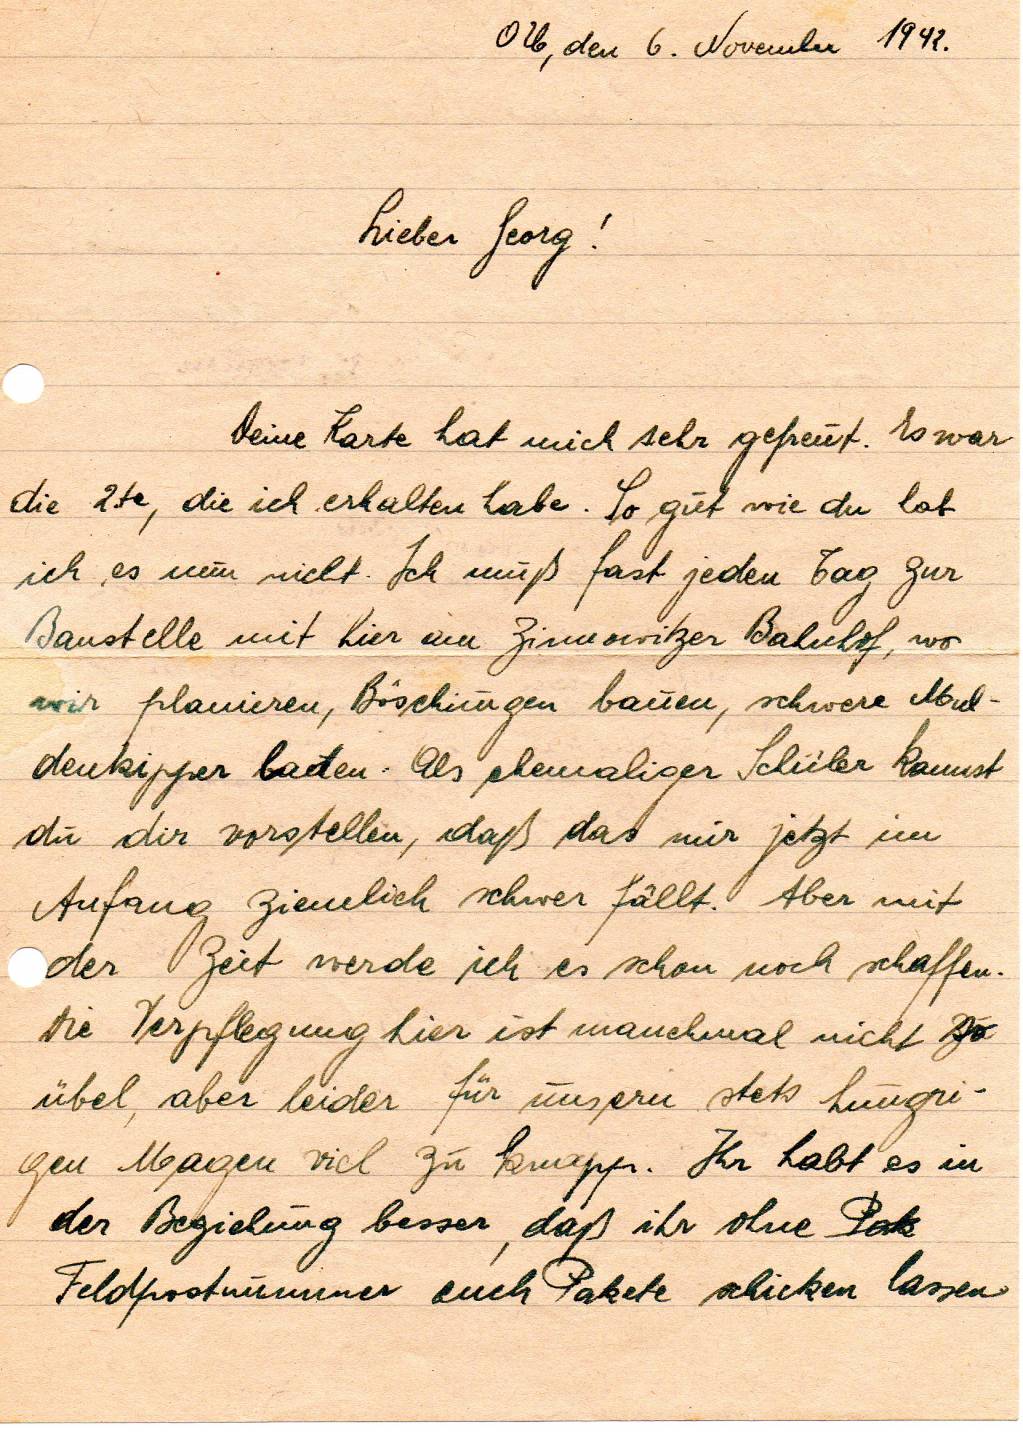 O.U., den 6. November 1942.
Lieber Georg!
Deine Karte hat mich sehr gefreut. Es war
die 2te, die ich erhalten habe. So gut wie du hab
ich es nun nicht. Ich muß fast jeden Tag zur
Baustelle mit hier am Zinnowitzer Bahnhof, wo
wir planieren, Böschungen bauen, schwere Mul-
denkipper laden. Als ehemaliger Schüler kannst
du dir vorstellen, daß das mir jetzt im
Anfang ziemlich schwer fällt. Aber mit
der Zeit werde ich es schon noch schaffen.
Die Verpflegung hier ist manchmal nicht
übel, aber leider für unsern stets hungri-
gen Magen viel zu knapp. Ihr habt es in
der Beziehung besser, daß ihr ohne
Feldpostnummer euch Pakete schicken lassen